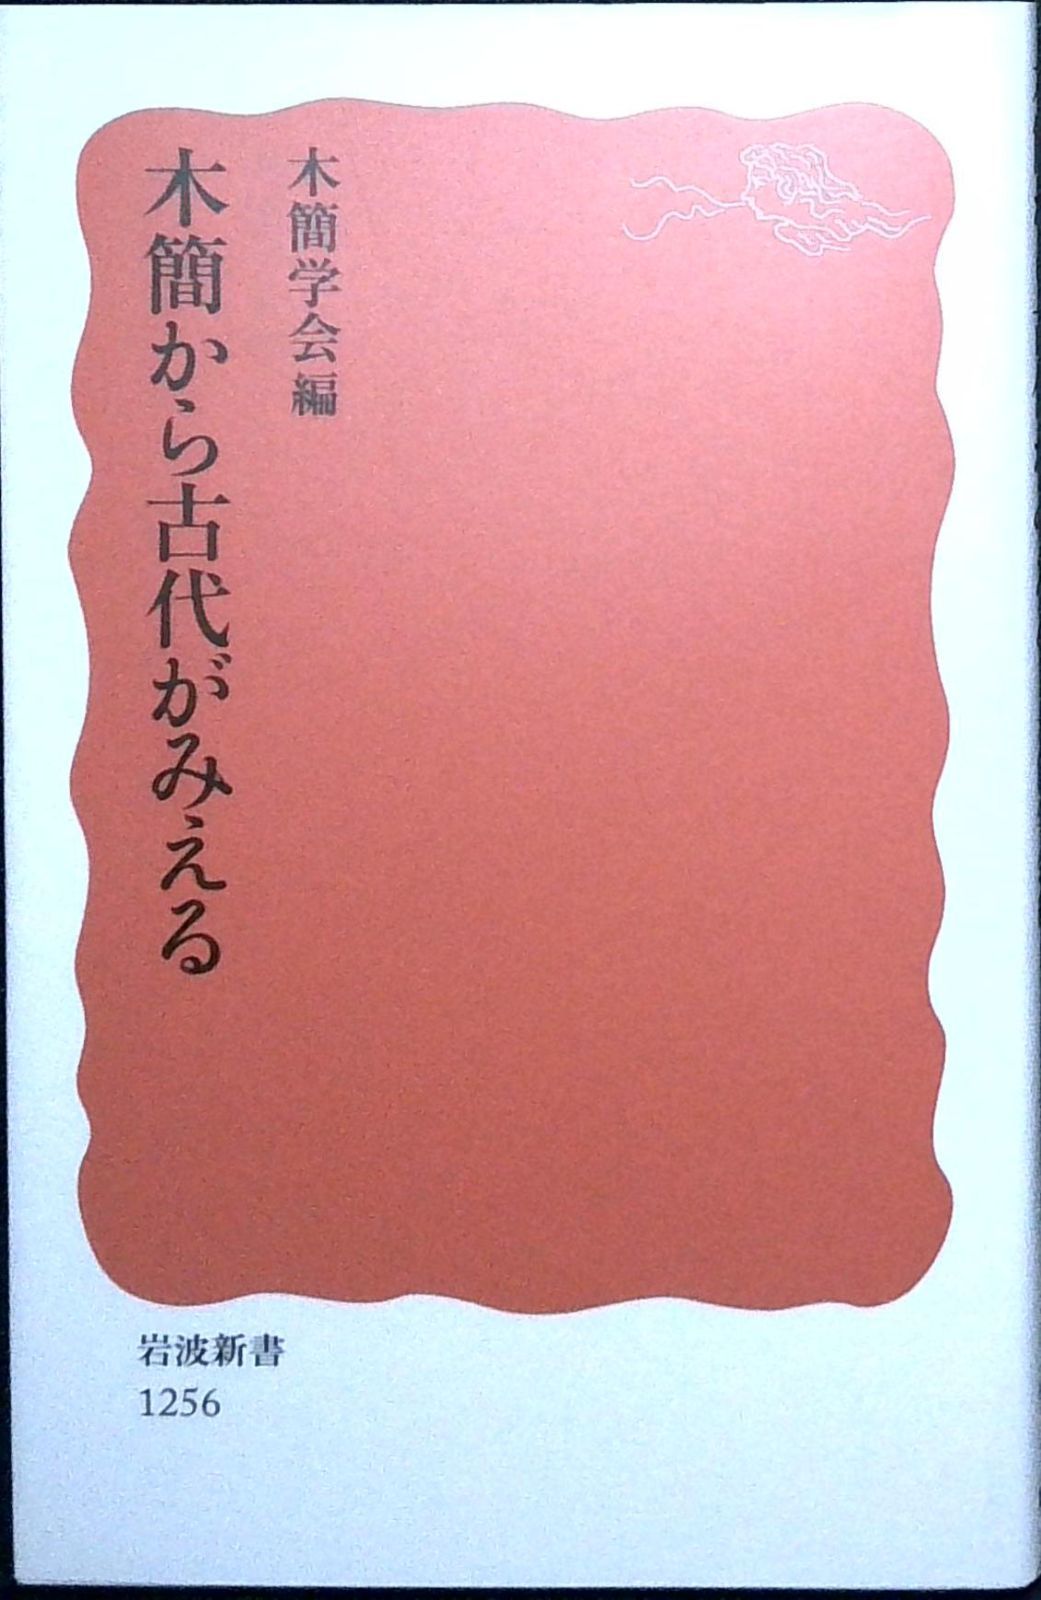 木簡学会編
木簡から古代がみえる
岩波新書
1256